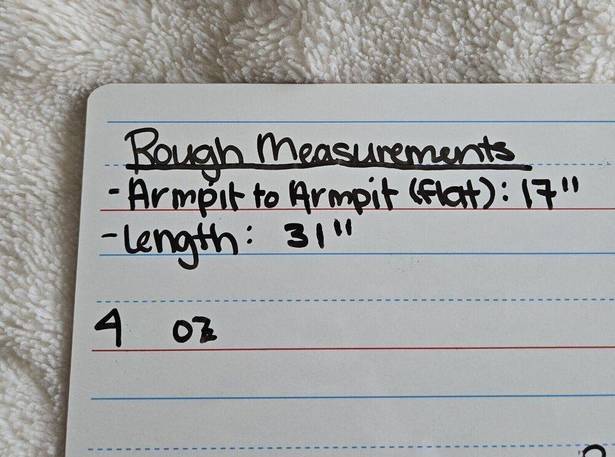 Rough Measurements
- Armpit to Armpit (flat): 17"
- Length: 31"
4 oz